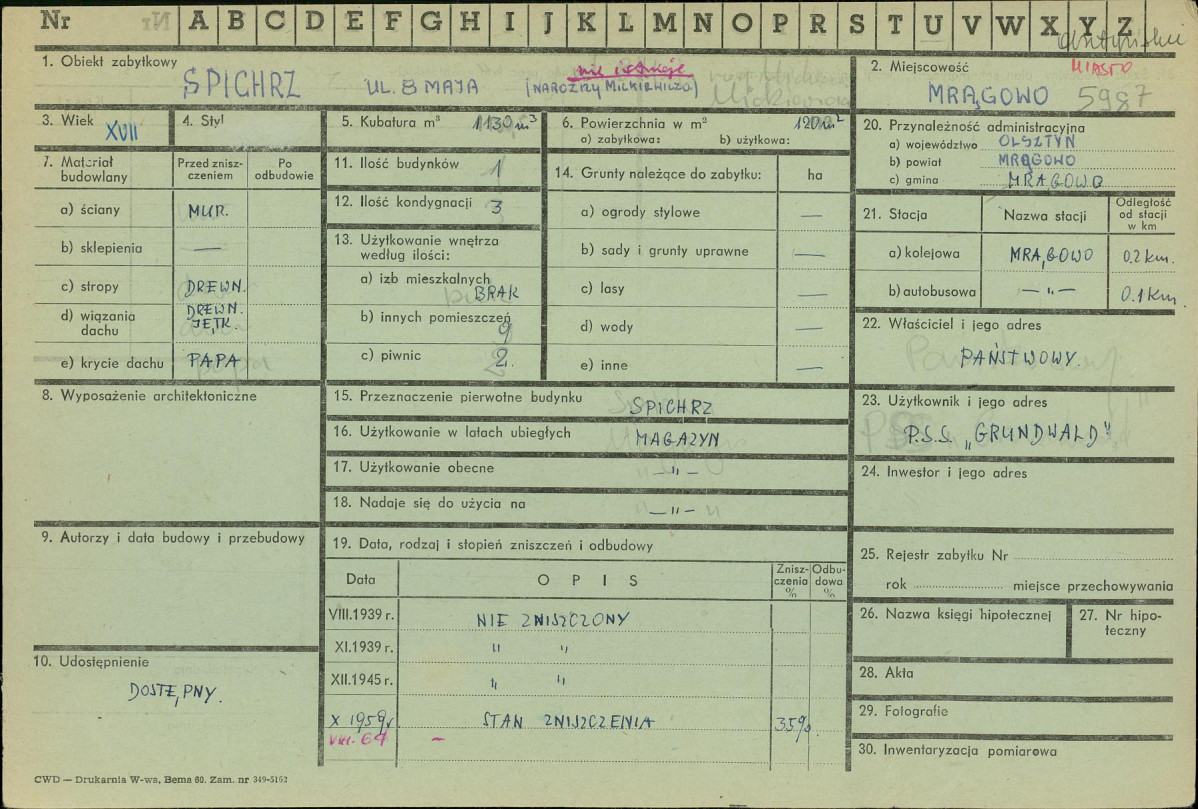 Nr A B C D E F G H I J K L M N O P R S T U V W X Y Z
1. Obiekt zabytkowy
SPICHRZ UL. 8 MAJA (NAROŻNY MICKIEWICZA)
nie istnieje
2. Miejscowość
MIASTO
MRĄGOWO 5987
3. Wiek XVII
4. Styl
5. Kubatura m³ 1130 m³
6. Powierzchnia w m² 120 m²
a) zabytkowa: b) użytkowa:
7. Materiał budowlany
Przed zniszczeniem
Po odbudowie
a) ściany MUR.
b) sklepienia —
c) stropy DREWN.
d) wiązania dachu DREWN. JĘTK.
e) krycie dachu PAPA
8. Wyposażenie architektoniczne
9. Autorzy i data budowy i przebudowy
10. Udostępnienie
DOSTĘPNY.
11. Ilość budynków 1
12. Ilość kondygnacji 3
13. Użytkowanie wnętrza według ilości:
a) izb mieszkalnych BRAK
b) innych pomieszczeń 9
c) piwnic 2.
14. Grunty należące do zabytku: ha
a) ogrody stylowe —
b) sady i grunty uprawne —
c) lasy —
d) wody —
e) inne —
15. Przeznaczenie pierwotne budynku SPICHRZ
16. Użytkowanie w latach ubiegłych MAGAZYN
17. Użytkowanie obecne —„—
18. Nadaje się do użycia na —„—
19. Data, rodzaj i stopień zniszczeń i odbudowy
Data
OPIS
Zniszczenia %
Odbudowa %
VIII.1939 r. NIE ZNISZCZONY
XI.1939 r. „ „
XII.1945 r. „ „
X 1959 r. STAN ZNISZCZENIA 35%.
VIII. 64 —
20. Przynależność administracyjna
a) województwo OLSZTYN
b) powiat MRĄGOWO
c) gmina MRĄGOWO
21. Stacja
Nazwa stacji
Odległość od stacji w km
a) kolejowa MRĄGOWO 0.2 km.
b) autobusowa —„— 0.1 km.
22. Właściciel i jego adres
PAŃSTWOWY.
23. Użytkownik i jego adres
P.S.S. „GRUNDWALD"
24. Inwestor i jego adres
25. Rejestr zabytku Nr
rok miejsce przechowywania
26. Nazwa księgi hipotecznej
27. Nr hipoteczny
28. Akta
29. Fotografie
30. Inwentaryzacja pomiarowa
CWD — Drukarnia W-wa, Bema 60. Zam. nr 349-5162